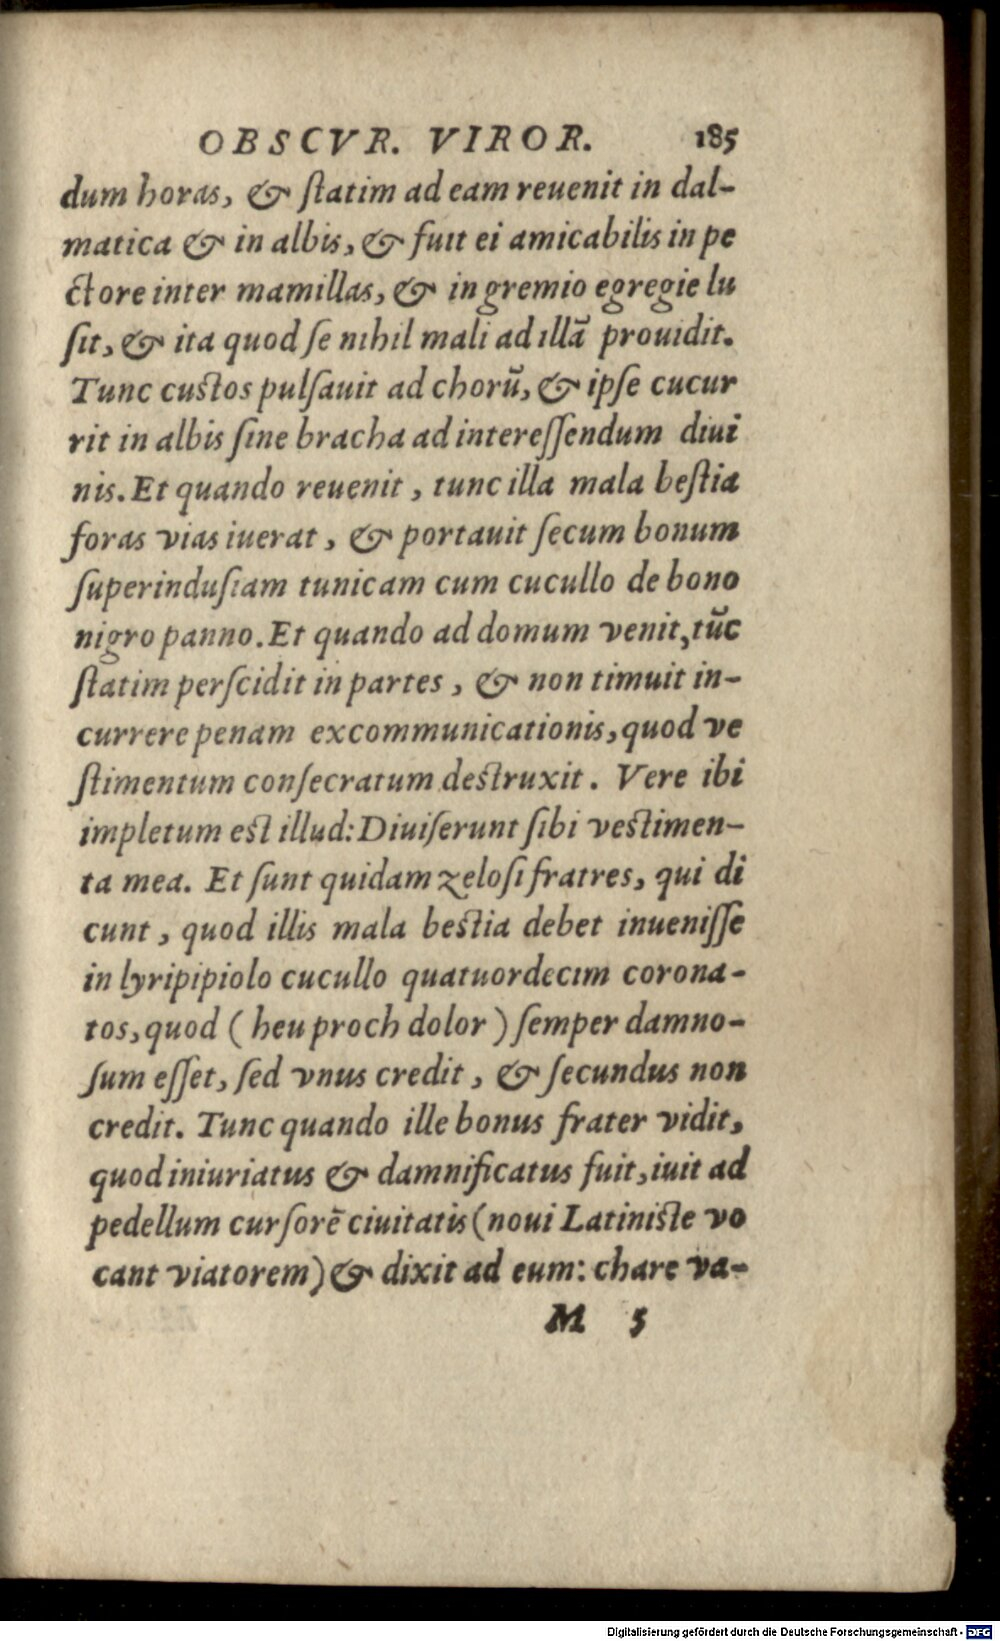 OBSCVR. VIROR. 185
dum horas, & ſtatim ad eam reuenit in dal-
matica & in albis, & fuit ei amicabilis in pe
ctore inter mamillas, & in gremio egregie lu
ſit, & ita quod ſe nihil mali ad illā prouidit.
Tunc custos pulſauit ad chorū, & ipſe cucur
rit in albis ſine bracha ad intereſſendum diui
nis. Et quando reuenit, tunc illa mala beſtia
foras vias iuerat, & portauit ſecum bonum
ſuperinduſiam tunicam cum cucullo de bono
nigro panno. Et quando ad domum venit, tūc
ſtatim perſcidit in partes, & non timuit in-
currere penam excommunicationis, quod ve
ſtimentum conſecratum destruxit. Vere ibi
impletum est illud: Diuiſerunt ſibi vestimen-
ta mea. Et ſunt quidam zeloſi fratres, qui di
cunt, quod illis mala bestia debet inueniſſe
in lyripipiolo cucullo quatuordecim corona-
tos, quod (heu proch dolor) ſemper damno-
ſum eſſet, ſed vnus credit, & ſecundus non
credit. Tunc quando ille bonus frater vidit,
quod iniuriatus & damnificatus fuit, iuit ad
pedellum curſorē ciuitatis (noui Latiniste vo
cant viatorem) & dixit ad eum: chare va-
M 5
Digitalisierung gefördert durch die Deutsche Forschungsgemeinschaft - DFG